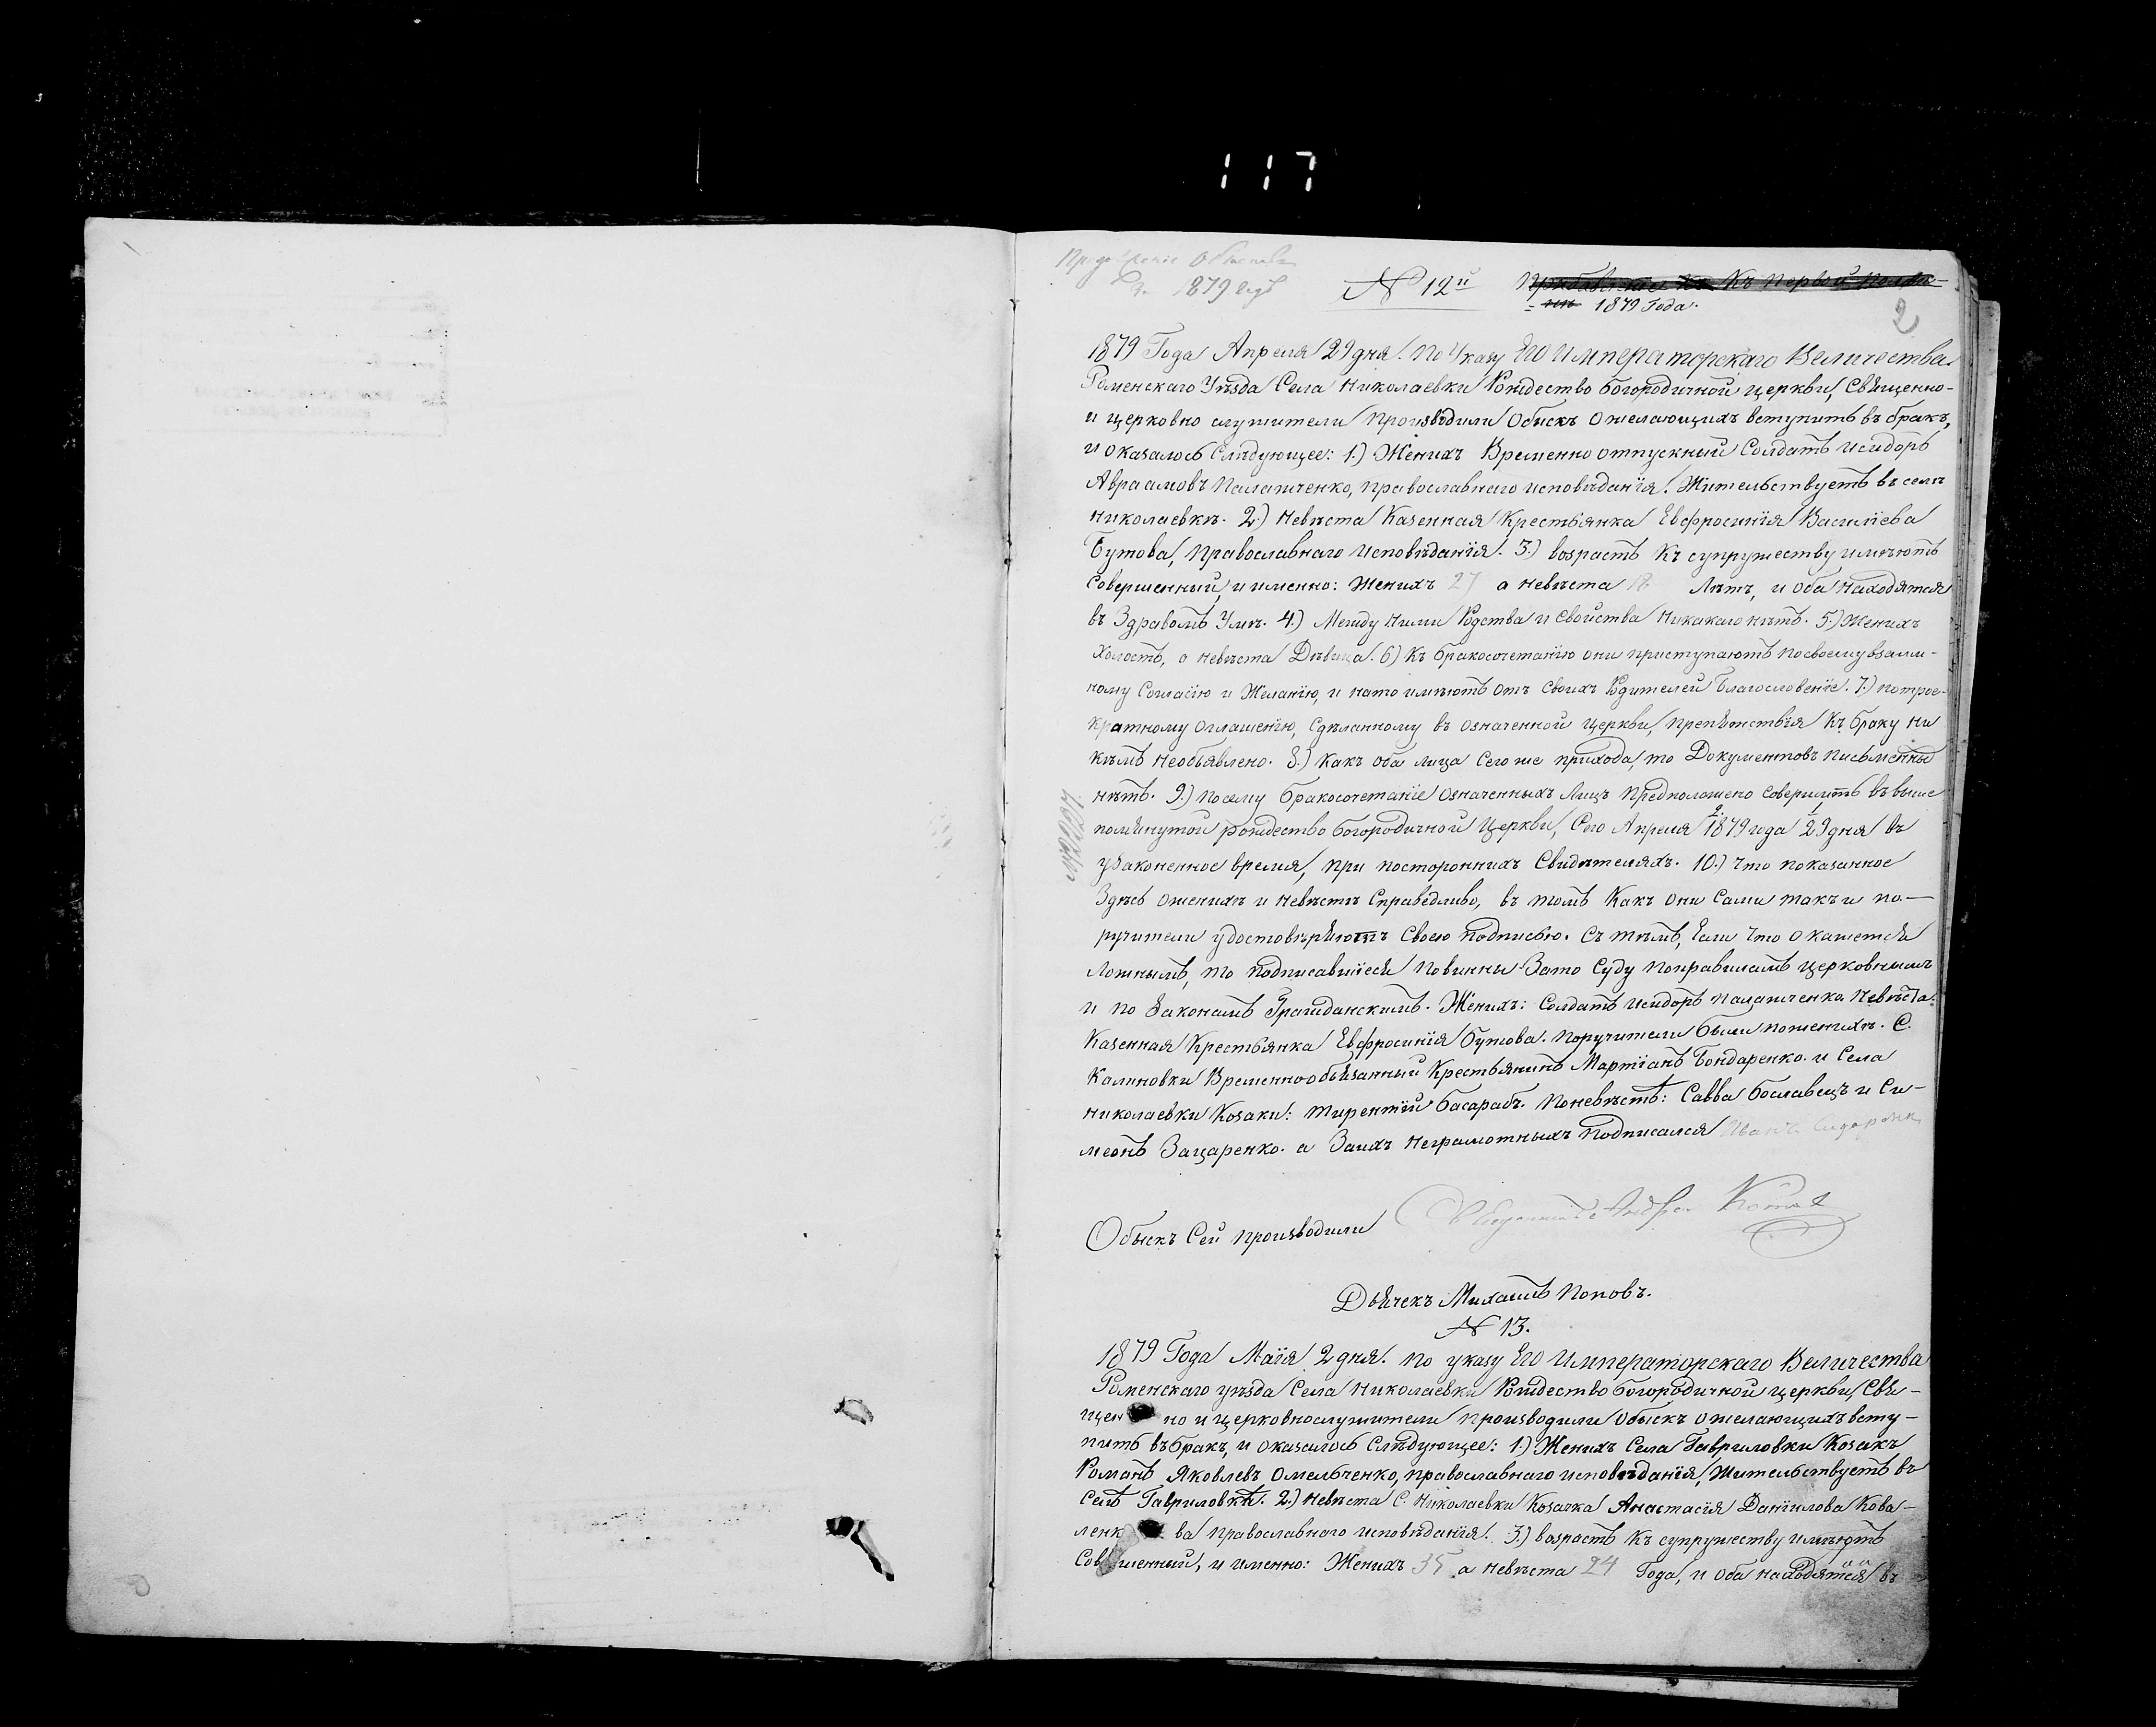 117
1879 года
№ 12й
Къ Первой
1879 Года.
2
1879 Года Апреля 29 дня. По Указу Его Императорскаго Величества
Роменскаго Уѣзда Села Николаевки Рождество Богородичной церкви, Священно-
и церковно служители производили Обыскъ о желающихъ вступить въ бракъ,
и оказалось Слѣдующее: 1.) Женихъ Временно отпускный Солдатъ Исидоръ
Авраамовъ Палатченко, православнаго исповѣданія. Жительствуетъ въ селѣ
Николаевкѣ. 2.) Невѣста Казенная Крестьянка Евфросинія Василіева
Бутова, Православнаго Исповѣданія. 3.) возрастъ Къ супружеству имѣютъ
Совершенный, и именно: Женихъ 27 а невѣста 18 Лѣтъ, и оба находятся
въ Здравомъ Умѣ. 4.) Между Ними Родства и Свойства Никакаго нѣтъ. 5.) Женихъ
Холостъ, а невѣста Дѣвица. 6) Къ бракосочетанію они приступаютъ по своему взаим-
ному Согласію и Желанію, и на то имѣютъ отъ Своихъ Родителей Благословеніе. 7.) по трое-
кратному Оглашенію, Сдѣланному въ Означенной Церкви, препятствія Къ браку Ни
кѣмъ Необъявлено. 8.) Какъ оба лица Сего же прихода, то Документовъ письменны
нѣтъ. 9.) Посему бракосочетаніе Означенныхъ Лицъ Предположено совершить въ выше
помянутой рождество богородичной Церкви, Сего Апреля 1879 года 29 дня въ
узаконенное время, при постороннихъ Свидѣтеляхъ. 10.) Что показанное
Здѣсь о женихѣ и Невѣстѣ Справедливо, въ томъ Какъ они Сами такъ и по-
ручители удостовѣряютъ Своею подписью. Съ тѣмъ, Если Что окажется
Ложнымъ, то подписавшіеся повинны За то Суду по правиламъ Церковнымъ
и по Законамъ Гражданскимъ. Женихъ: Солдатъ Исидоръ Палатченко Невѣста:
Казенная Крестьянка Евфросинія Бутова. Поручители были по женихѣ. С.
Калиновки Временнообязанный Крестьянинъ Мартіанъ Бондаренко. и Села
Николаевки Козаки: Тирентій Басарабъ. По невѣстѣ: Савва Бославецъ и Си-
меонъ Зацаренко. а За ихъ Неграмотныхъ Подписался Иванъ
Обыскъ Сей Производили
Дьячекъ Михаилъ Поповъ.
№ 13.
1879 Года Маія 2 дня. По указу Его Императорскаго Величества
Роменскаго уѣзда Села Николаевки Рождество Богородичной церкви, Свя-
щен но и церковнослужители производили Обыскъ о желающихъ всту-
пить въ бракъ, и оказалось Слѣдующее: 1.) Женихъ Села Гавриловки Козакъ
Романъ Яковлевъ Омельченко, православнаго исповѣданія, Жительствуетъ въ
Селѣ Гавриловкѣ. 2.) Невѣста С. Николаевки Козачка Анастасія Даніилова Кова-
ленк ва православнаго исповѣданія. 3.) возрастъ Къ супружеству имѣютъ
Сов шенный, и именно: Женихъ 35 а невѣста 24 Года, и оба находятся въ